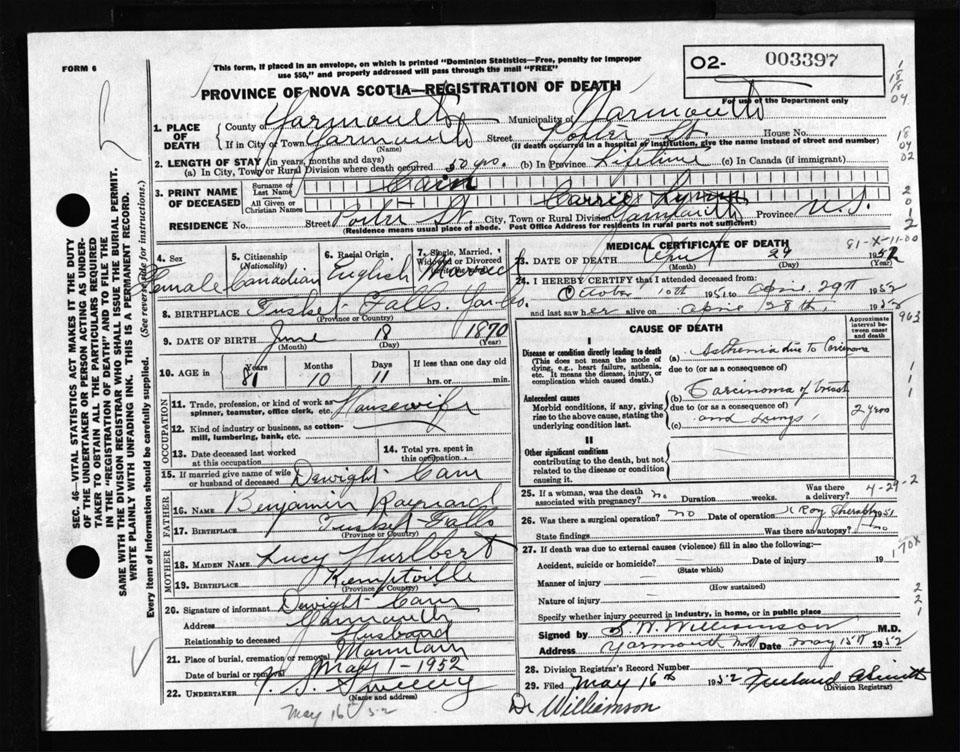 FORM 6
This form, if placed in an envelope, on which is printed "Dominion Statistics—Free, penalty for improper
use $50," and properly addressed will pass through the mail "FREE"
O2- 003397
For use of the Department only
PROVINCE OF NOVA SCOTIA—REGISTRATION OF DEATH
1. PLACE OF DEATH
County of Yarmouth Municipality of Yarmouth
If in City or Town Yarmouth Street Porter St. House No.
(Name) (If death occurred in a hospital or institution, give the name instead of street and number)
2. LENGTH OF STAY (in years, months and days)
(a) In City, Town or Rural Division where death occurred 50 yrs. (b) In Province Lifetime (c) In Canada (if immigrant)
3. PRINT NAME OF DECEASED
Surname or Last Name Cain
All Given or Christian Names Carrie
RESIDENCE No. Street Porter St. City, Town or Rural Division Yarmouth Province N.S.
(Residence means usual place of abode. Post Office Address for residents in rural parts not sufficient)
4. Sex Female
5. Citizenship (Nationality) Canadian
6. Racial Origin English
7. Single, Married, Widowed or Divorced Married
8. BIRTHPLACE Tusket Falls. Yar. Co.
(Province or Country)
9. DATE OF BIRTH June 18 1870
(Month) (Day) (Year)
10. AGE in Years 81 Months 10 Days 11 If less than one day old hrs. or min.
OCCUPATION
11. Trade, profession, or kind of work as spinner, teamster, office clerk, etc. Housewife
12. Kind of industry or business, as cotton-mill, lumbering, bank, etc.
13. Date deceased last worked at this occupation
14. Total yrs. spent in this occupation
15. If married give name of wife or husband of deceased Dewight Cain
FATHER
16. Name Benjamin Raynard
17. Birthplace Tusket Falls
(Province or Country)
MOTHER
18. MAIDEN NAME Lucy Hurlbert
19. BIRTHPLACE Kemptville
(Province or Country)
20. Signature of informant Dewight Cain
Address Yarmouth
Relationship to deceased Husband
21. Place of burial, cremation or removal Mountain
Date of burial or removal May 1 - 1952
22. UNDERTAKER Sweeny
(Name and address)
May 16 52
MEDICAL CERTIFICATE OF DEATH
23. DATE OF DEATH April 29 1952
(Month) (Day) (Year)
24. I HEREBY CERTIFY that I attended deceased from:
October 10th 1951 to April 29th 1952
and last saw her alive on April 28th, 1952
CAUSE OF DEATH
Approximate interval between onset and death
I
Disease or condition directly leading to death
(This does not mean the mode of dying, e.g., heart failure, asthenia, etc. It means the disease, injury, or complication which caused death.)
(a) Asthenia due to Carcinoma
due to (or as a consequence of)
Antecedent causes
Morbid conditions, if any, giving rise to the above cause, stating the underlying condition last.
(b) Carcinoma of breast
due to (or as a consequence of)
and Lungs, 2 years
(c)
II
Other significant conditions
contributing to the death, but not related to the disease or condition causing it.
25. If a woman, was the death associated with pregnancy? no Duration weeks. Was there a delivery?
4-29-2
26. Was there a surgical operation? no Date of operation X Ray Therapy 1951
State findings Was there an autopsy? no
27. If death was due to external causes (violence) fill in also the following:—
Accident, suicide or homicide? Date of injury 19
(State which)
170X
Manner of injury
(How sustained)
Nature of injury
Specify whether injury occurred in industry, in home, or in public place
Signed by S. W. Williamson M.D.
Address Yarmouth North Date May 15th 1952
28. Division Registrar's Record Number
29. Filed May 16th 1952
(Division Registrar)
Dr Williamson
81-X-11-00
963
SEC. 46—VITAL STATISTICS ACT MAKES IT THE DUTY
OF THE UNDERTAKER OR PERSON ACTING AS UNDER-
TAKER TO OBTAIN ALL THE PARTICULARS REQUIRED
IN THE "REGISTRATION OF DEATH" AND TO FILE THE
SAME WITH THE DIVISION REGISTRAR WHO SHALL ISSUE THE BURIAL PERMIT.
WRITE PLAINLY WITH UNFADING INK. THIS IS A PERMANENT RECORD.
Every item of information should be carefully supplied. (See reverse for instructions.)